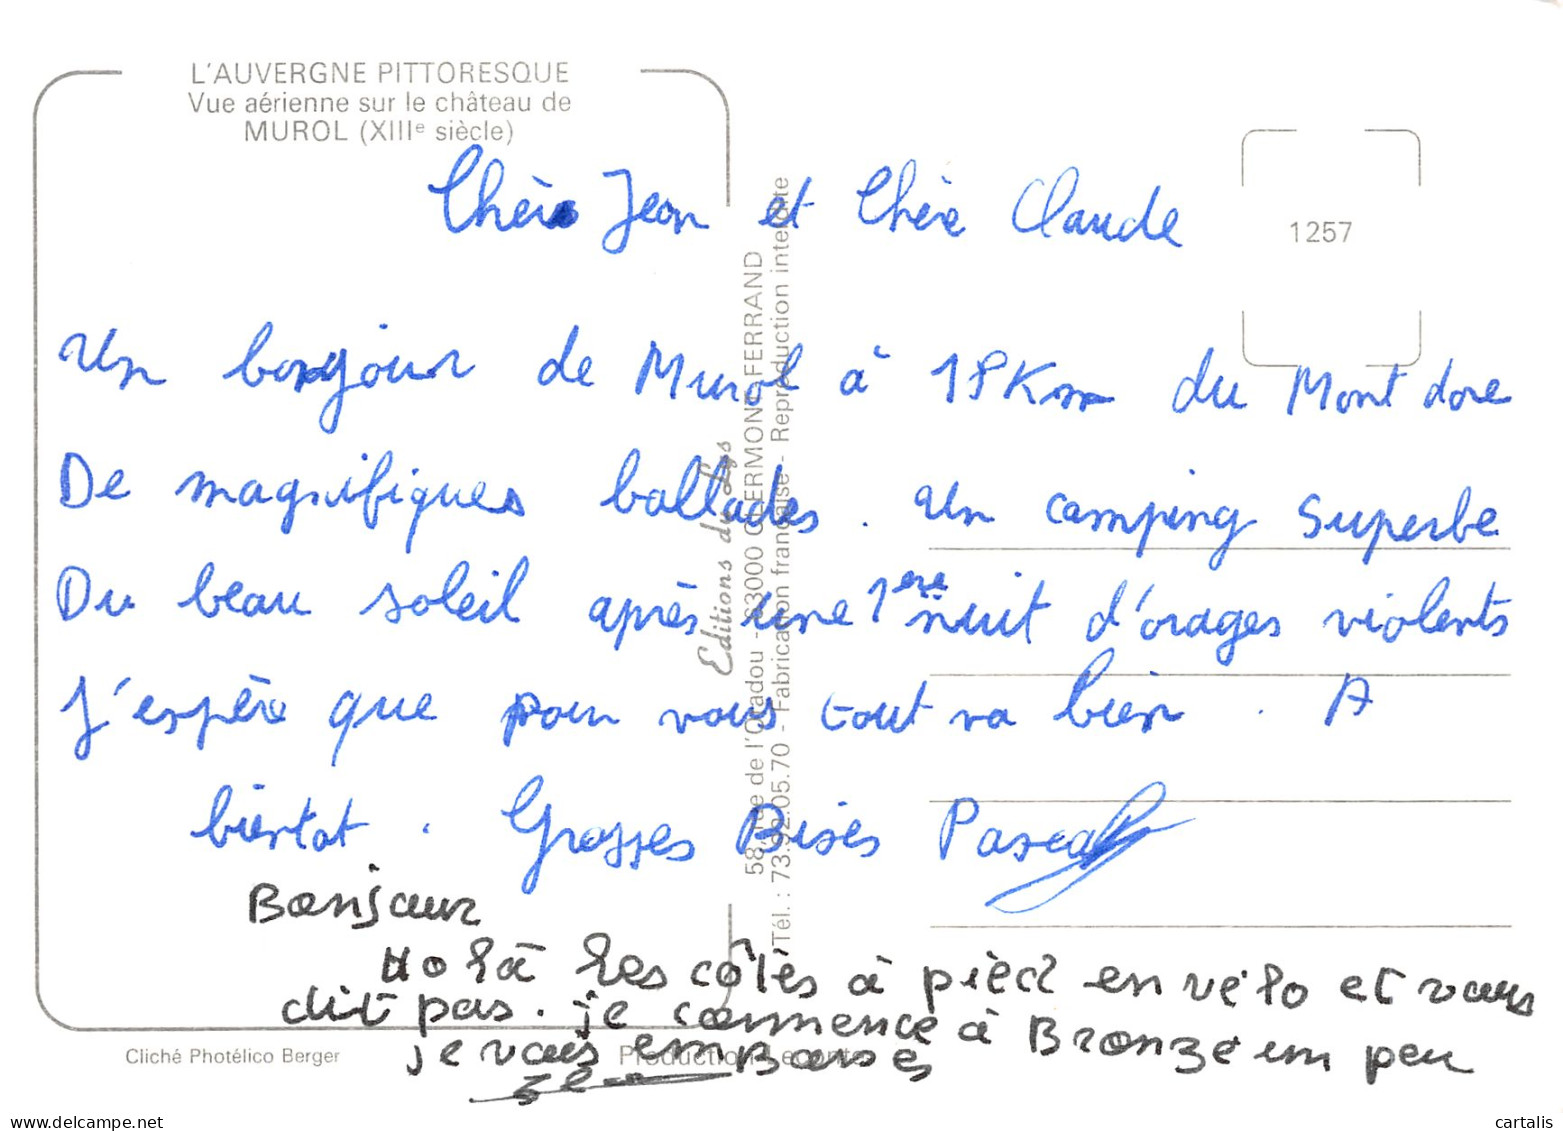 L'AUVERGNE PITTORESQUE
Vue aérienne sur le château de
MUROL (XIIIe siècle)
1257
Chère Jean et Chère Claude
Un bonjour de Murol à 19Km du Mont dore
De magnifiques ballades. Un camping Superbe
Du beau soleil après une 1ère nuit d'orages violents
J'espère que pour vous tout va bien. A
bientot. Grosses Bises Pascal
Bonjour
Holà les côtès à pièd en vélo et vous
dit pas. je commence à Bronze un peu
je vous emBasses
Editions du Lys
58, rue de l'Oradou - 63000 CLERMONT-FERRAND
Tél. : 73.92.05.70 - Fabrication française - Reproduction interdite
Cliché Photélico Berger
Production Leconte
cartalis